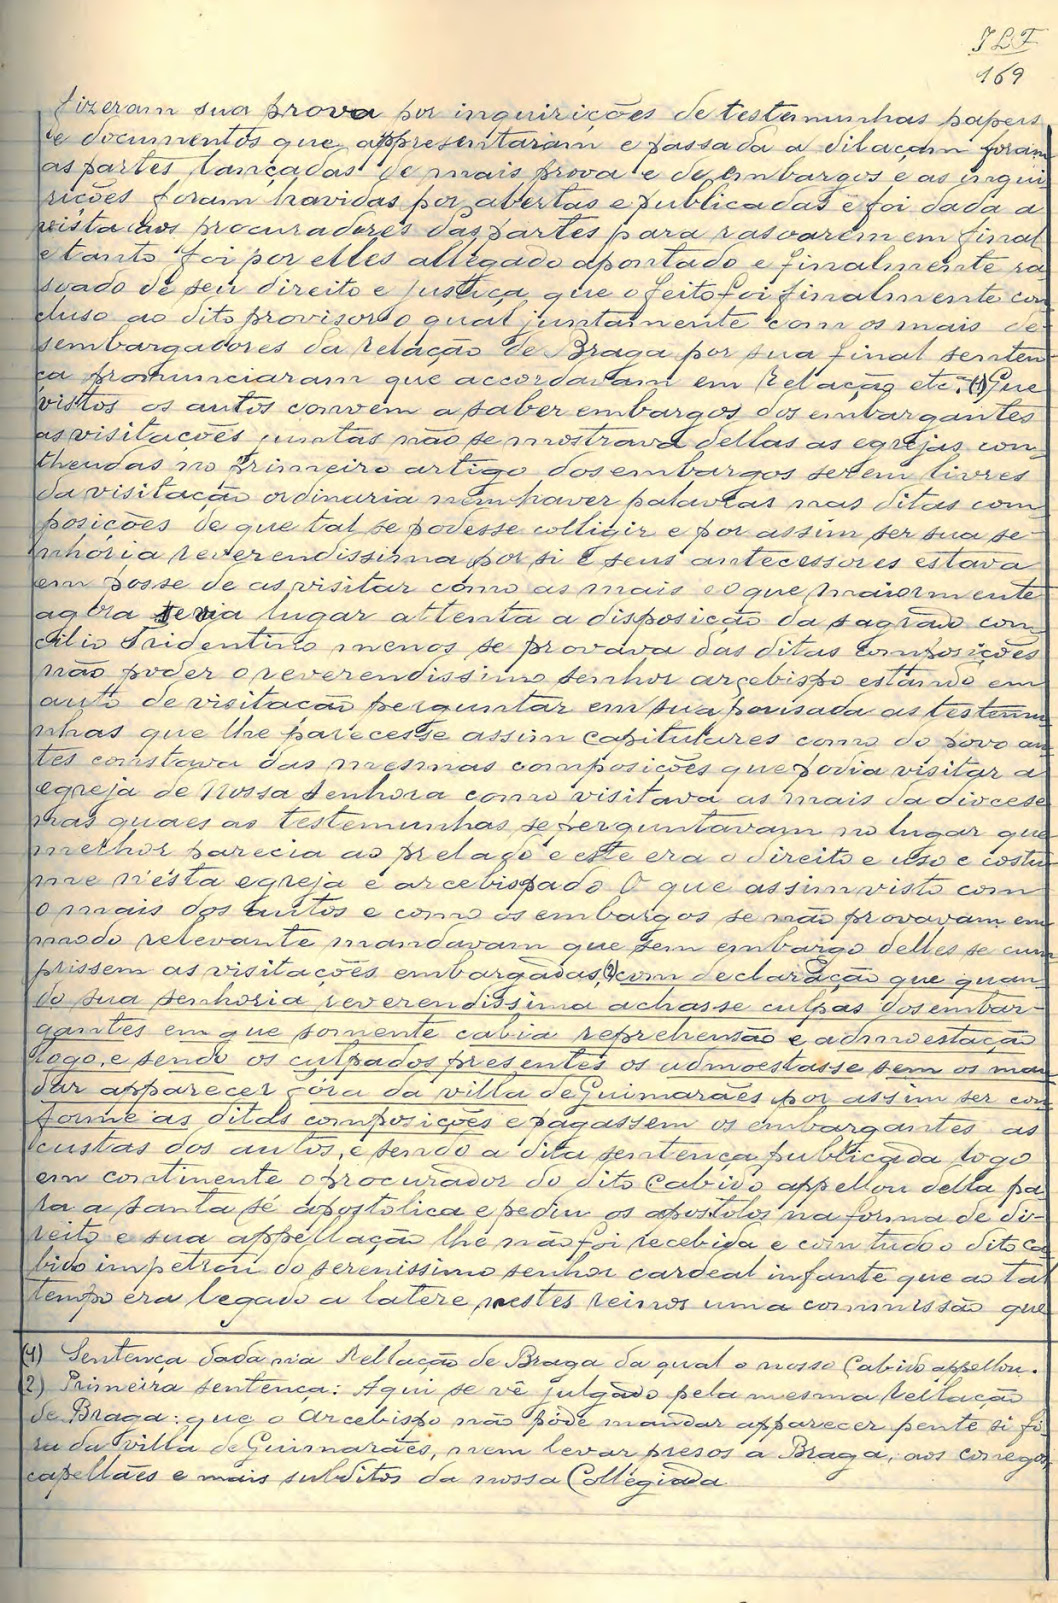 JLF
169
fizeram sua prova por inquirições de testemunhas papeis
e documentos que appresentaram e passada a dilaçam foram
as partes lançadas de mais prova e de embargos e as inqui
rições foram havidas por abertas e publicadas e foi dada a
vista aos procuradores das partes para rasoarem em final
e tanto foi por elles allegado apontado e finalmente ra
soado de seu direito e justiça que o feito foi finalmente con
cluso ao dito provisor o qual juntamente com os mais de-
sembargadores da relação de Braga por sua final senten-
ça pronunciaram que accordavam em Relação etc. (1) Que
vistos os autos convém a saber embargos dos embargantes
as visitações juntas não se mostrava dellas as egrejas con-
theudas no primeiro artigo dos embargos serem livres
da visitação ordinaria nem haver palavras nas ditas com-
posições de que tal se podesse colligir e por assim ser sua se-
nhoria reverendissima por si e seus antecessores estava
em posse de as visitar como as mais e o que maiormente
agora teria lugar attenta a disposição do sagrado con-
cilio Tridentino menos se provava das ditas composições
não poder o reverendissimo senhor arcebispo estando em
auto de visitação perguntar em sua pousada as testemu
nhas que lhe parecesse assim capitulares como do povo an
tes constava das mesmas composições que podia visitar a
egreja de Nossa Senhora como visitava as mais da diocese
nas quaes as testemunhas se perguntavam no lugar que
melhor parecia ao prelado e este era o direito e uso e costu
me n'esta egreja e arcebispado O que assim visto com
o mais dos autos e como os embargos se não provavam em
modo relevante mandavam que sem embargo delles se cum
prissem as visitações embargadas, (2) com declaração que quan-
do sua senhoria reverendissima achasse culpas dos embar-
gantes em que somente cabia reprehensão e admoestação
logo, e sendo os culpados presentes os admoestasse sem os man
dar apparecer fóra da villa de Guimarães por assim ser con
forme as ditas composições e pagassem os embargantes as
custas dos autos, e sendo a dita sentença publicada logo
em continente o procurador do dito Cabido appellou della pa
ra a santa sé apostolica e pediu os apostolos na forma de di-
reito e sua appellação lhe não foi recebida e com tudo o dito ca
bido impetrou do serenissimo senhor cardeal infante que ao tal
tempo era legado a latere nestes reinos uma commissão que
(1) Sentença dada na Rellação de Braga da qual o nosso Cabido appellou.
2) Primeira sentença: Aqui se vê julgado pela mesma Rellação
de Braga: que o Arcebispo não póde mandar apparecer pente si fó
ra da villa de Guimarães, nem levar presos a Braga, aos conegos
capellães e mais subditos da nossa Collegiada